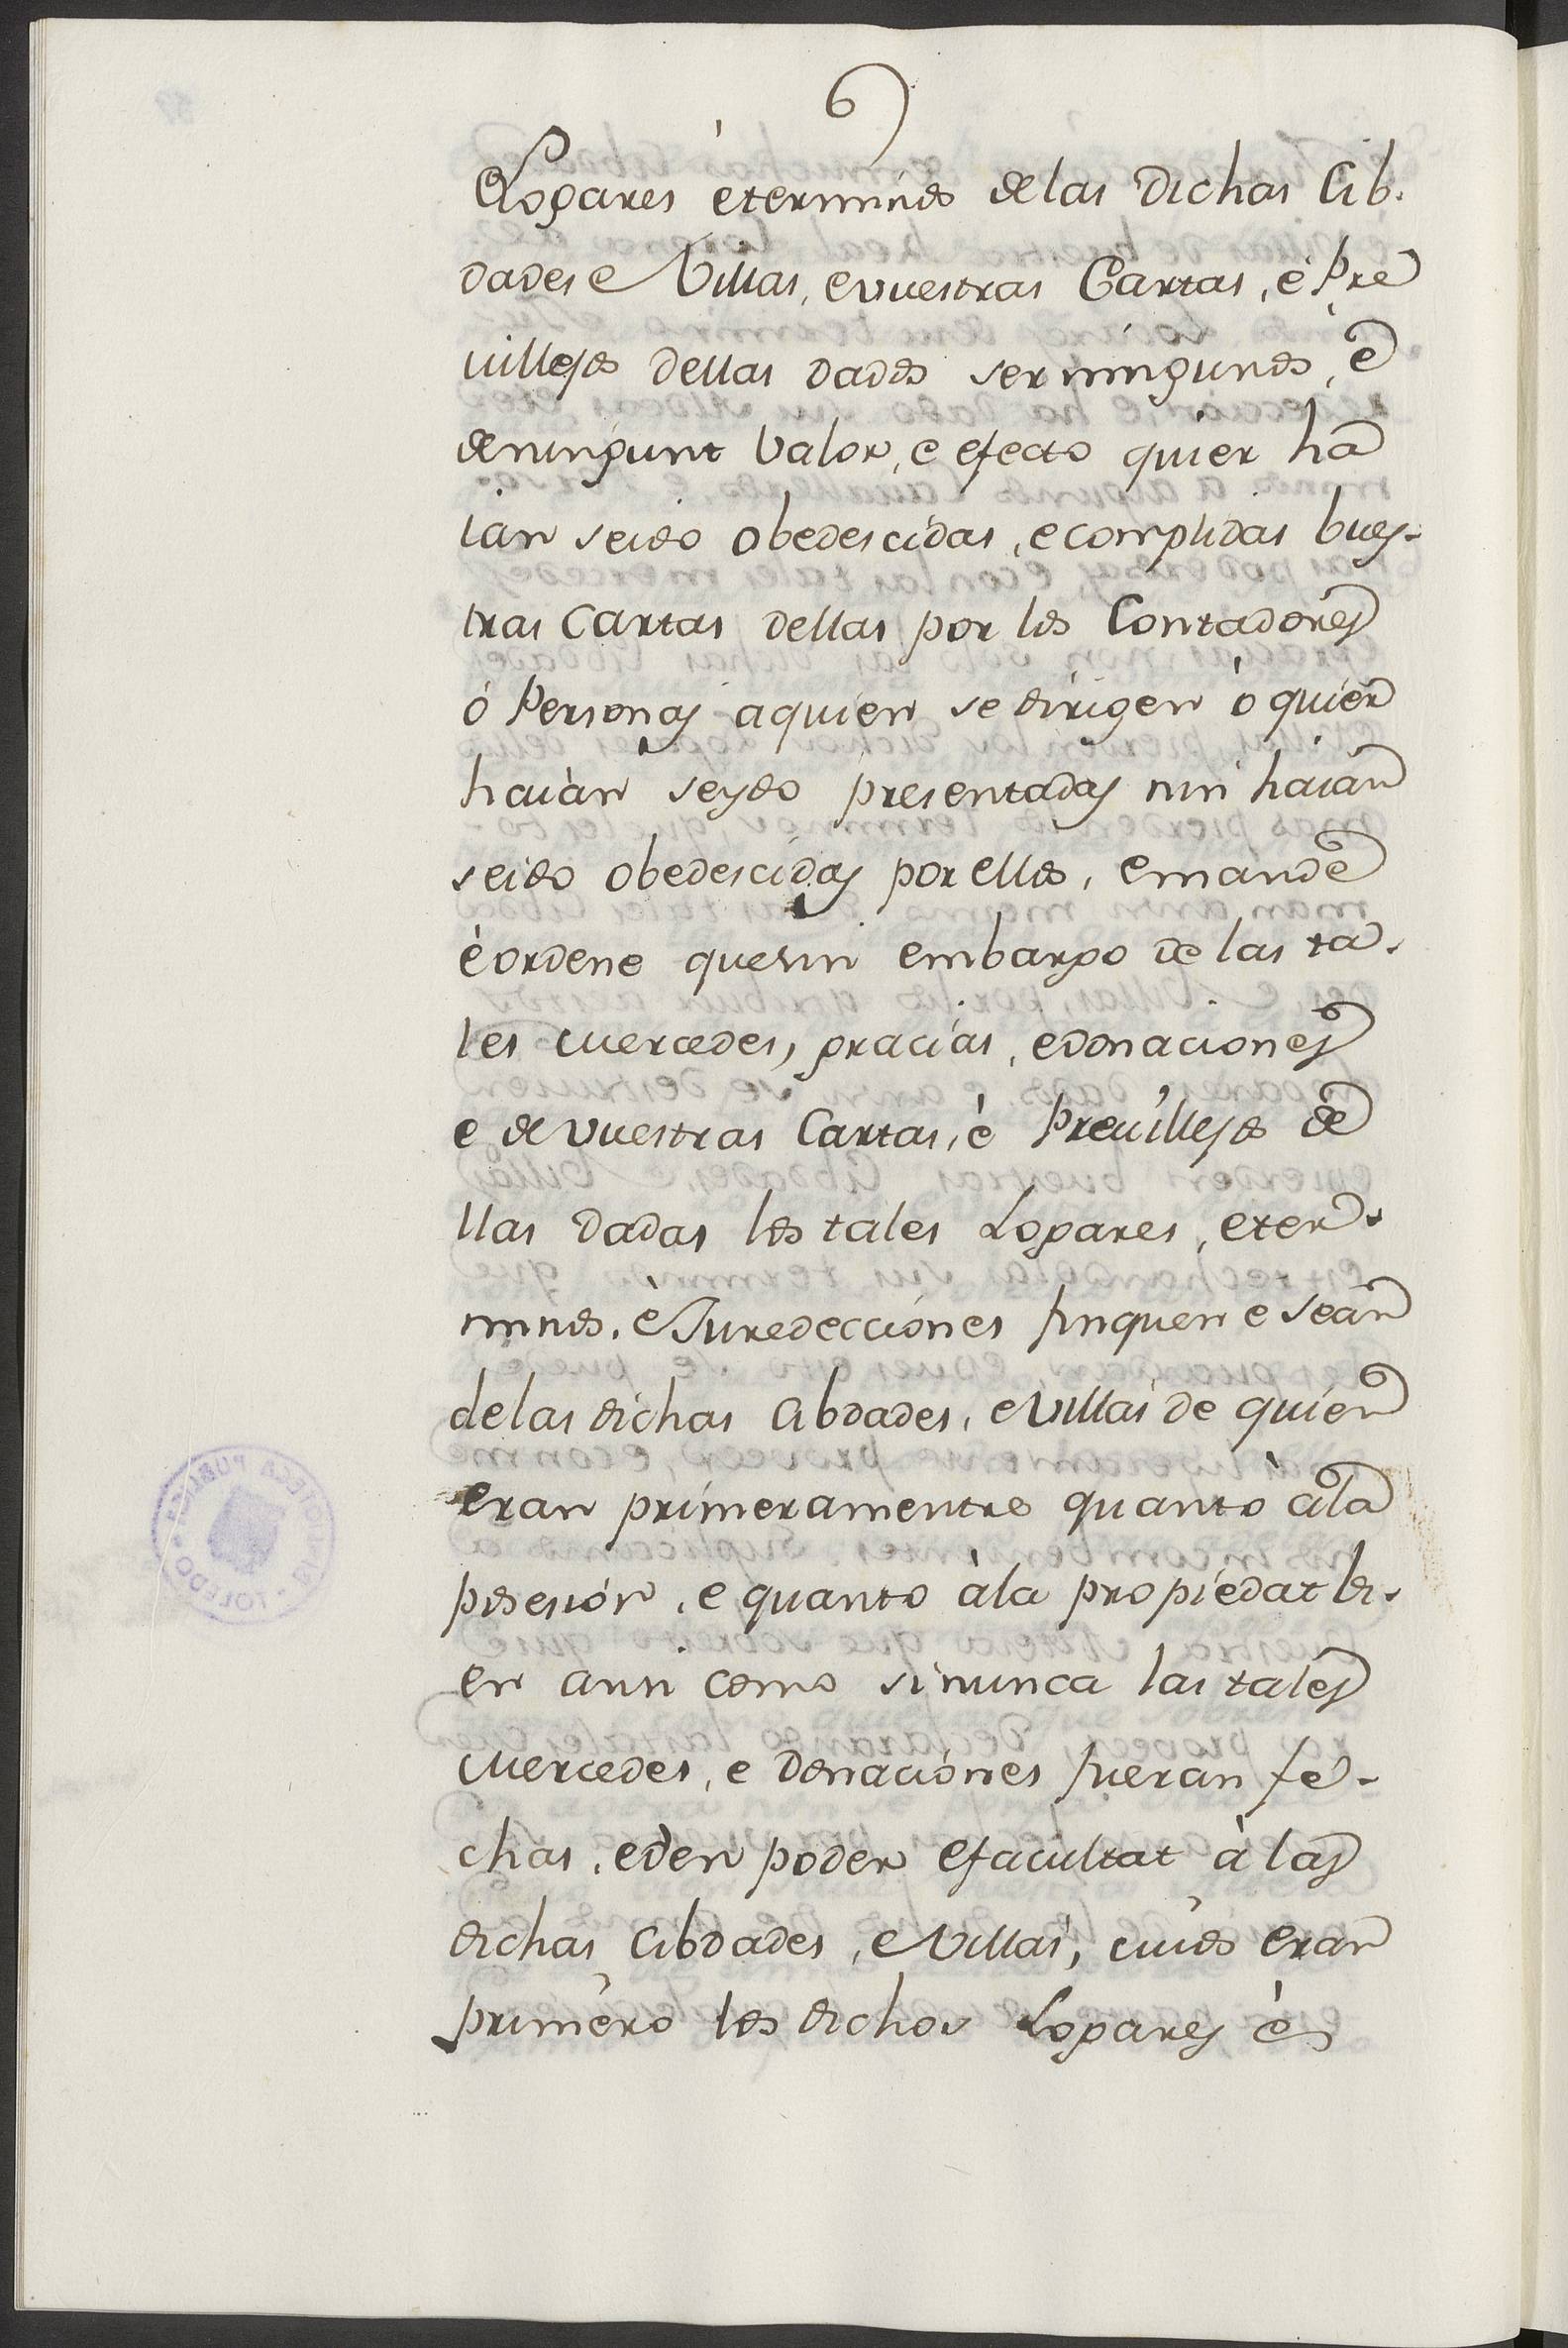 Logares é terminos de las Dichas Cib.
dades e Villas, e vuestras Cartas, é Pre
uillejos dellas dados ser ningunos, e
de ningunt valor, e efecto quier ha
ian seido obedescidas, e complidas bues-
tras Cartas dellas por los Contadores
ó Personas a quien se dirigen ó quier
haian seydo presentadas nin haian
seido obedescidas por ellos, e mande
é ordene que sin embargo de las ta-
les mercedes, gracias, e donaciones
e de vuestras Cartas, é Preuillejos de
llas dadas los tales Logares, e ter-
minos, é Juredecciones finquen e sean
de las dichas Cibdades, e Villas de quien
eran primeramentre quanto á la
posesión, e quanto á la propiedat bi-
en ansi como si nunca las tales
mercedes, e donaciónes fueran fe-
chas, e den poder e facultat á las
dichas Cibdades, e Villas, cuios eran
primero los dichos Logares é
BIBLIOTECA PUBLICA - TOLEDO -